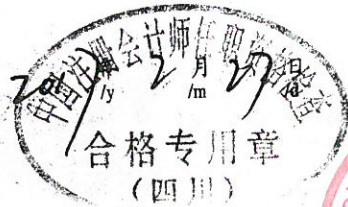 中国注册会计师任职资格检查
2017年 2月 27日
/y /m /d
合格专用章
(四川)